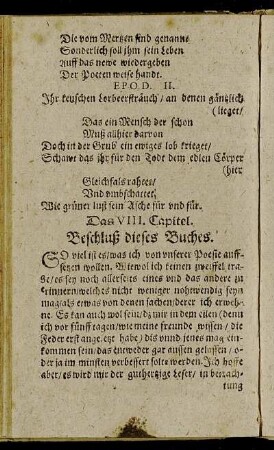 Die vom Mertzen sind genannt
Sonderlich soll jhm sein Leben
Auff das newe wiedergeben
Der Poeten weise handt.
EPOD. II.
Jhr keuschen Lorbeersträuch / an denen gäntzlich
(lieget/
Das ein Mensch der schon
Muß allhier darvon
Doch in der Grub' ein ewiges lob krieget/
Schawt das jhr für den Tode dem edlen Cörper
(hier
Gleichfals rahtet/
Vnd vmbschattet
Wie grüner lust sein Asche für vnd für.
Das VIII. Capitel.
Beschluß dieses Buches.
SO viel ist es / was ich von vnserer Poesie auff-
setzen wollen. Wiewol ich keinen zweiffel tra-
ge / es sey noch allerseits eines vnd das andere zu
erinnern / welches nicht weniger nohtwendig seyn
mag / als etwas von denen sachen / derer ich erweh-
ne. Es kan auch wol sein / dz mir in dem eilen (denn
ich vor fünff tagen / wie meine freunde wissen / die
Feder erst angesetzt habe) diß vnnd jenes mag ein-
kommen sein / das entweder gar aussen gelassen / o-
der ja im minsten verbessert solte werden. Ich hoffe
aber / es wird mir der guthertzige Leser / in betrach-
tung